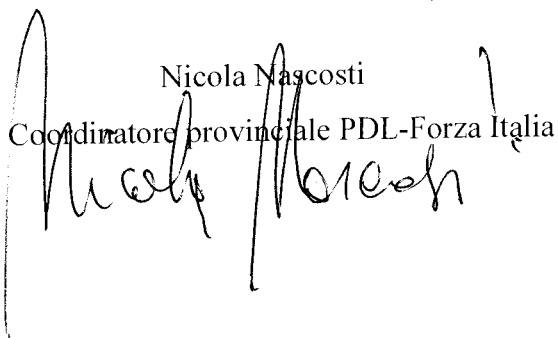 Nicola Nascosti
Coordinatore provinciale PDL-Forza Italia
Nicola Nascosti